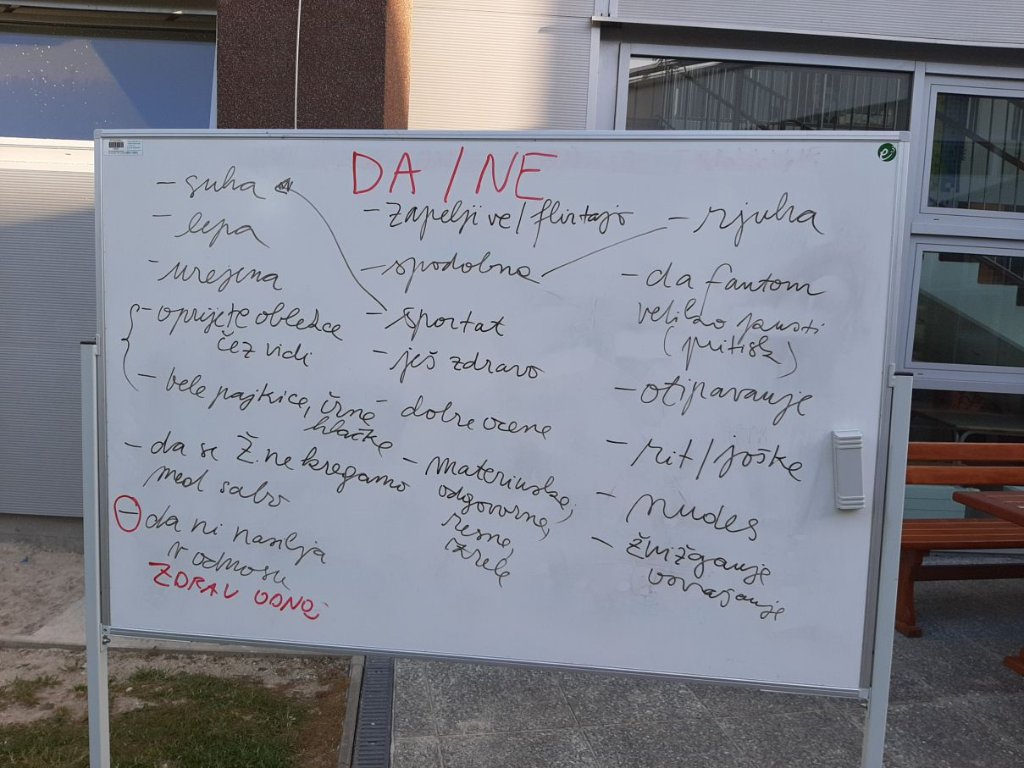 DA / NE
- suha
- lepa
- urejena
- oprijete obleke
čez vidi
- bele pajkice, črne
hlačke
- da se Ž. ne kregamo
med sabo
- da ni nasilja
v odnosu
ZDRAV ODNOS
- zapeljive / flirtajo
- spodobna
- športat
- ješ zdravo
- dobre ocene
- materinske,
odgovorne,
resne,
zrele
- rjuha
- da fantom
veliko pusti
(pritisk)
- otipavanje
- rit / joške
- nudes
- žvižganje